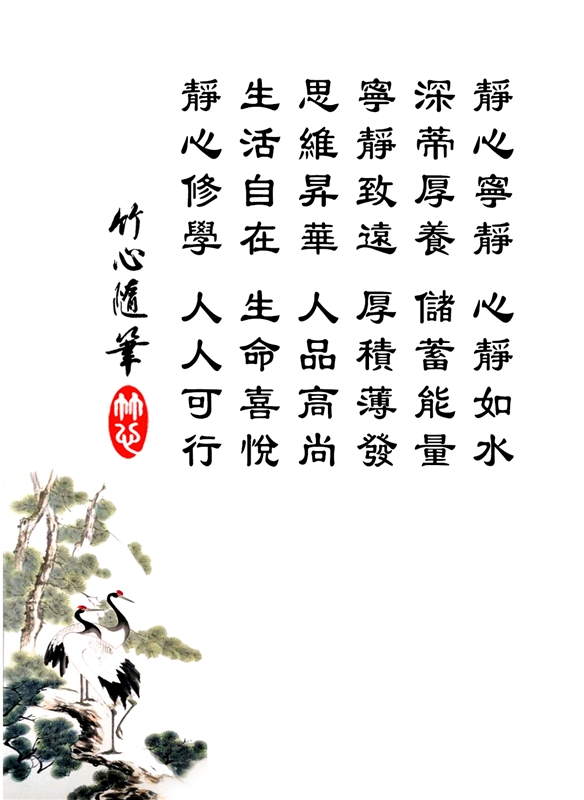 靜心寧靜 心靜如水
深蒂厚養 儲蓄能量
寧靜致遠 厚積薄發
思維昇華 人品高尚
生活自在 生命喜悅
靜心修學 人人可行
竹心隨筆
竹心